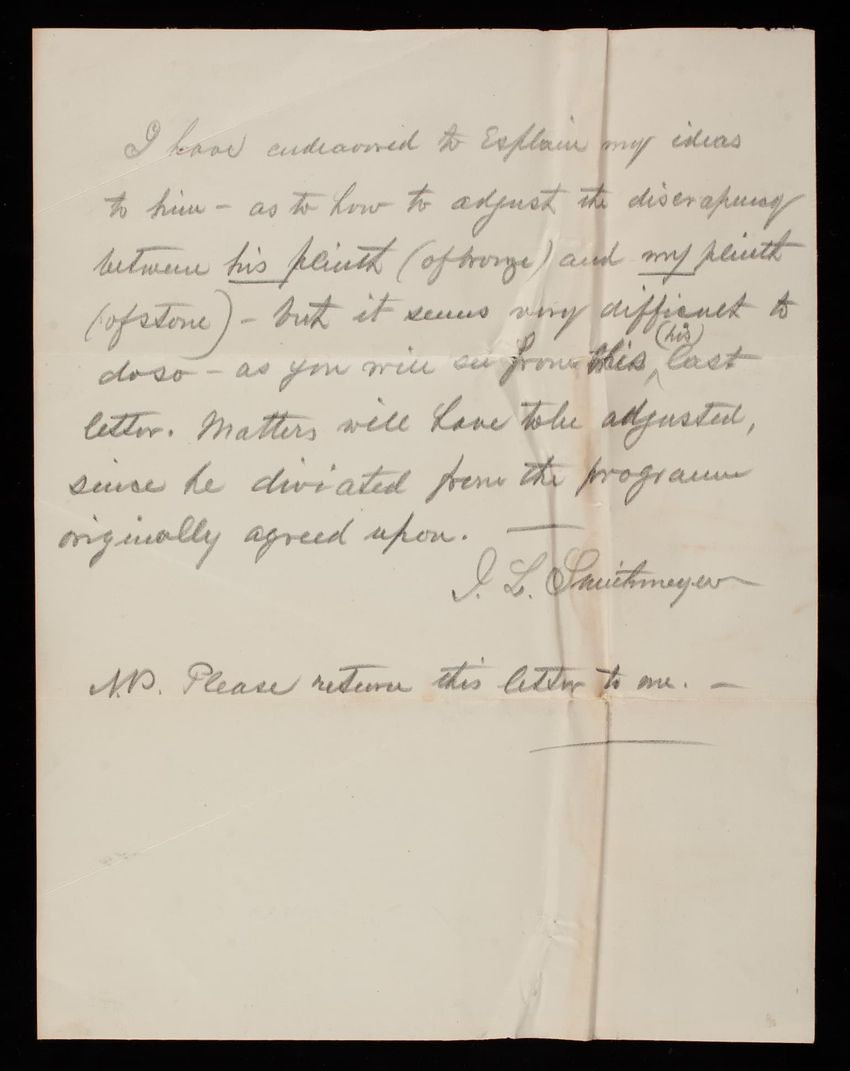 I have endeavored to Explain my ideas
to him – as to how to adjust the discrapency
between his plinth (of bronze) and my plinth
(of stone) – but it seems very difficult to
do so – as you will see from this (his) last
letter. Matters will have to be adjusted,
since he diviated from the programme
originally agreed upon. —
J. L. Smithmeyer
N.B. Please return this letter to me. —